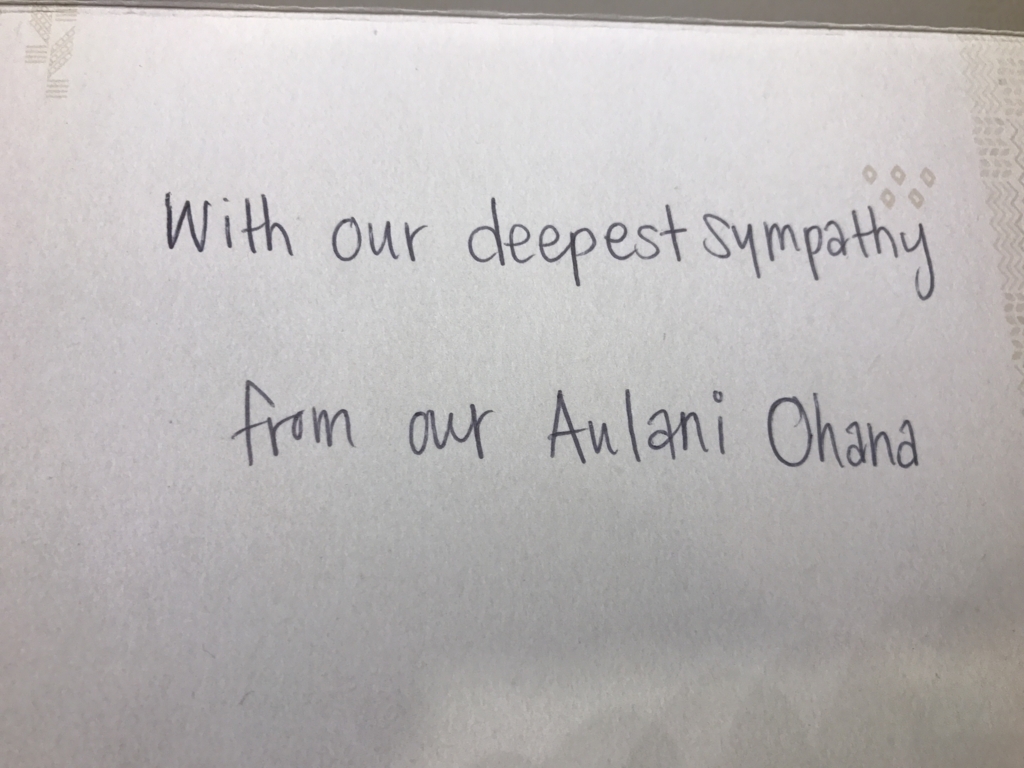 With our deepest sympathy
from our Aulani Ohana